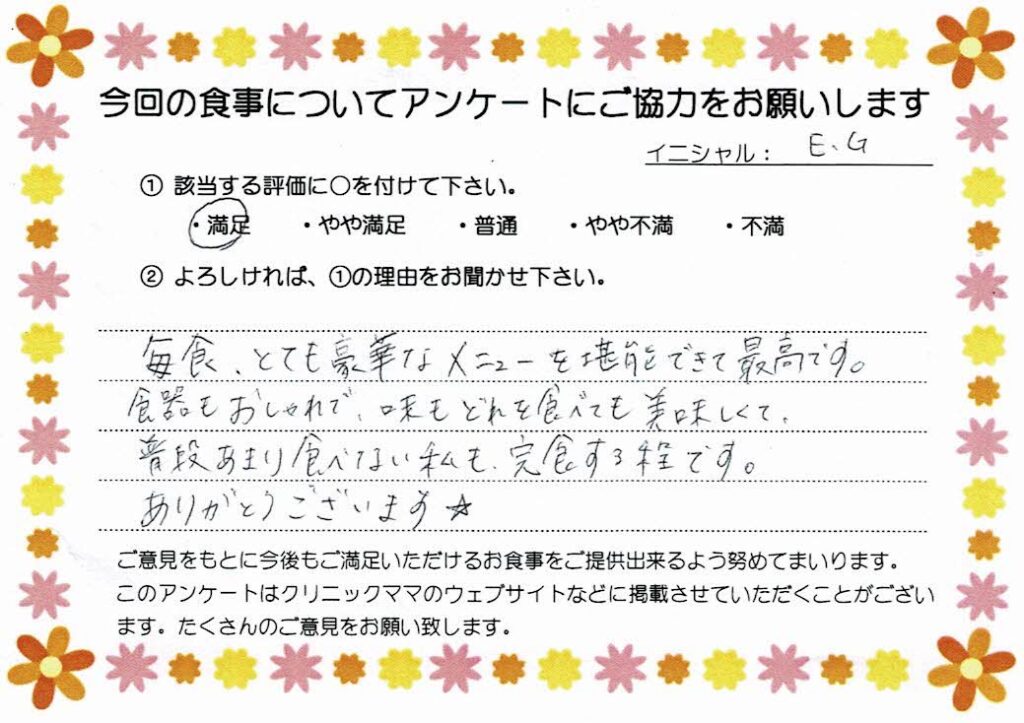 今回の食事についてアンケートにご協力をお願いします
イニシャル： E、G
① 該当する評価に〇を付けて下さい。
・満足 ・やや満足 ・普通 ・やや不満 ・不満
② よろしければ、①の理由をお聞かせ下さい。
毎食、とても豪華なメニューを堪能できて最高です。
食器もおしゃれで、味もどれを食べても美味しくて、
普段あまり食べない私も、完食する程です。
ありがとうございます☆
ご意見をもとに今後もご満足いただけるお食事をご提供出来るよう努めてまいります。
このアンケートはクリニックママのウェブサイトなどに掲載させていただくことがござい
ます。たくさんのご意見をお願い致します。